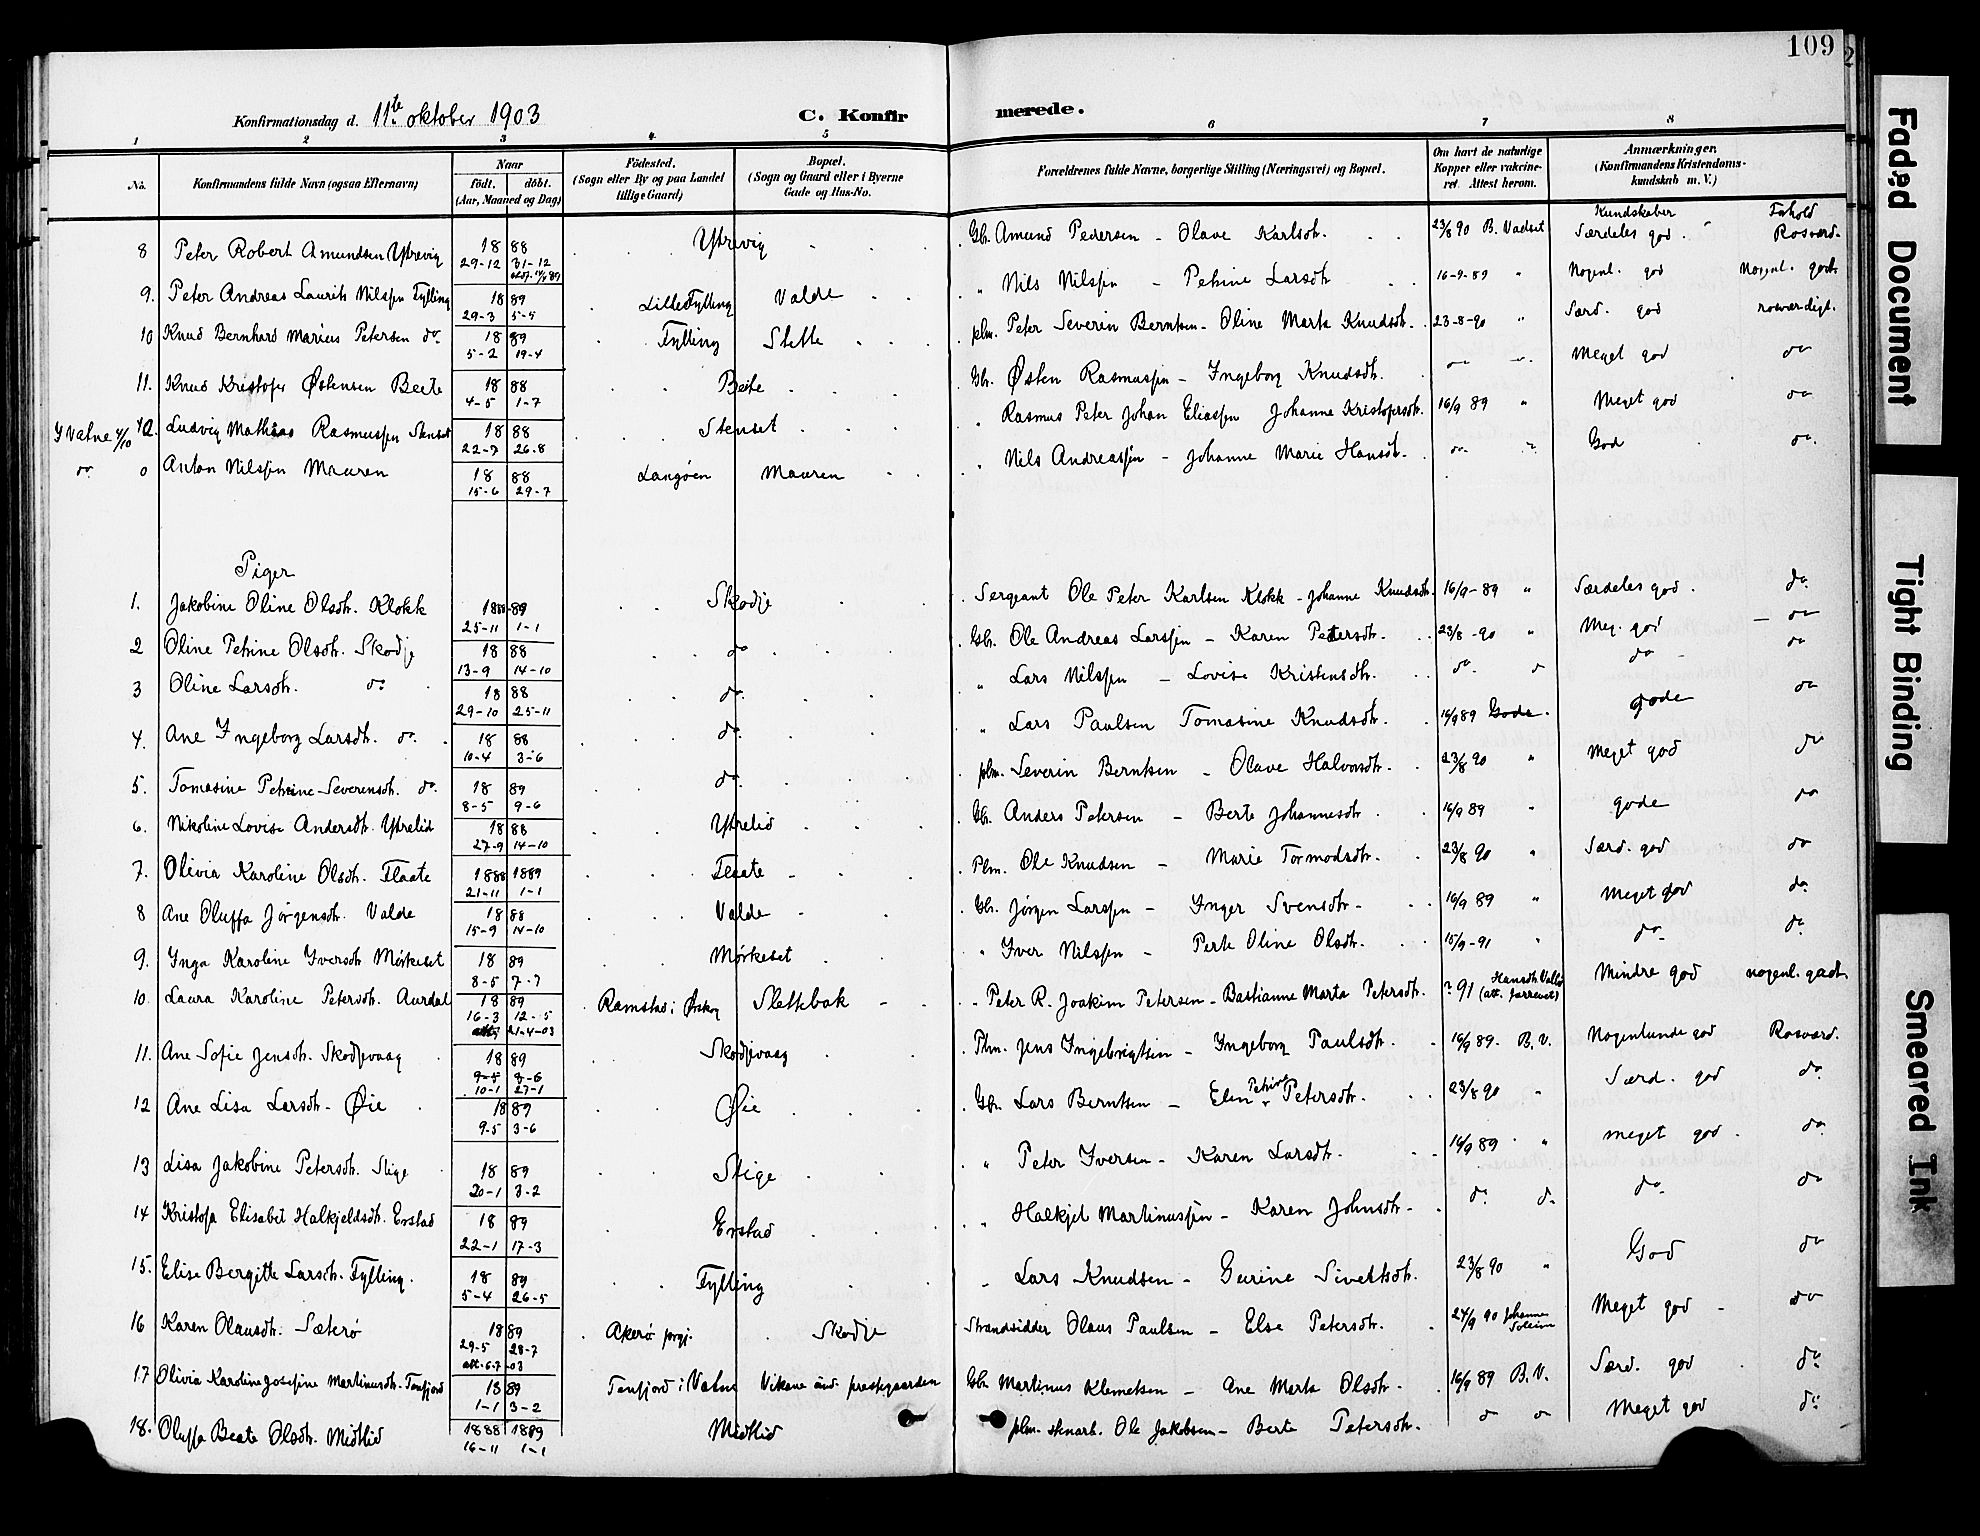 109
Konfirmationsdag d. 11te oktober 1903 C. Konfirmerede.
1 2 3 4 5 6 7 8
No. Konfirmandens fulde Navn (ogsaa Efternavn) Naar födt. döbt. (Aar, Maaned og Dag) Födested. (Sogn eller By og paa Landet tillige Gaard) Bopæl. (Sogn og Gaard eller i Byerne Gade og Hus-No. Forældrenes fulde Navne, borgerlige Stilling (Næringsvei) og Bopæl. Om havt de naturlige Kopper eller vakcineret. Attest herom. Anmærkninger. (Konfirmandens Kristendomskundskab m. V.)
Kundskaber Forhold
8 Peter Robert Amundsen Ytrevig 1888 29-12 31-12 Ytrevig Gbr. Amund Pedersen - Olave Karlsdtr. 23/8 90 B. Vadset Særdeles god. Rosværd.
9. Peter Andreas Laurits Nilssen Fylling 1889 29-3 5-5 Lille Fylling Valde " Nils Nilssen - Petrine Larsdtr 16-9-89 " Nogenl. god Nogenl. godt
10 Knud Bernhard Marius Petersen do. 1889 5-2 19-4 Fylling Slette plm. Peter Severin Berntsen - Oline Marta Knudsdtr. 23-8-90 " Særd. god rosværdigt.
11. Knud Kristofer Østensen Beite 1888 4-5 1-7 Beite Gbr. Østen Rasmussen - Ingeborg Knudsdtr. do do. Meget god do
I Vatne 4/10 12. Ludvig Mathias Rasmussen Stenset 1888 22-7 26-8 Stenset " Rasmus Peter Johan Eliassen Johanne Kristofersdtr. 16/9 89 " Meget god do
do. o Anton Nilssen Mauren 1888 15-6 29-7 Langøen Mauren " Nils Andreassen - Johanne Marie Hansdtr. do. " God do.
Piger
1. Jakobine Oline Olsdtr. Klokk 1888-89 25-11 1-1 Skodje Sergeant Ole Peter Karlsen Klokk - Johanne Knudsdtr. 16/9-89 " Særdeles god. do.
2 Oline Petrine Olsdtr. Skodje 1888 13-9 14-10 do. Gbr. Ole Andreas Larssen - Karen Petersdtr. 23/8-90 " Meg. god - do
3 Oline Larsdtr. do. 1888 29-10 25-11 do. " Lars Nilssen - Lovise Kristensdtr. do. do do - do
4. Ane Ingeborg Larsdtr. do. 1888 10-4 3-6 do. " Lars Paulsen Tomasine Knudsdtr. 16/9 89 Gode. gode do
5. Tomasine Petrine Severensdtr. do. 1889 8-5 9-6 do. plm. Severin Berntsen - Olave Halvorsdtr. 23/8 90 " Meget god do
6. Nikoline Lovise Andersdtr. Ytrelid 1888 27-9 14-10 Ytrelid Gbr. Anders Petersen - Berte Johannesdtr 16/9 89 " gode do
7. Olivia Karoline Olsdtr. Flaate 1888 1889 21-11 1-1 Flaate Plm. Ole Knudsen - Marie Tormodsdtr. 23/8 90 " Særd. god do
8 Ane Oluffa Jørgensdtr. Valde 1888 15-9 14-10 Valde Gbr. Jørgen Larssen - Inger Svensdtr - 16/9 89 " Meget god do.
9. Inga Karoline Iversdtr Mørkeset 1889 8-5 7-7 Mørkeset " Iver Nilssen - Perte Oline Olsdtr. 15/9-91 " do. do.
10. Laura Karoline Petersdtr. Aurdal 1889 16-3 12-5 21-4-03 Ramstad i Ørskog Slettebak " Peter R. Joakim Petersen - Bastianne Marta Petersdtr. ? 91 Mindre god nogenl. godt.
11. Ane Sofie Jensdtr. Skodjevaag 1889 9-5 8-6 10-1 27-1 Skodjevaag Plm. Jens Ingebrigtsen - Ingeborg Paulsdtr. 16/9 89. B.V. Nogenlunde god Rosværd.
12 Ane Lisa Larsdtr. Øie 1889 9-5 3-6 Øie Gbr. Lars Berntsen - Elen Petrine Petersdtr. 23/8 90 " Særd. god do.
13 Lisa Jakobine Petersdtr. Stige 1889 20-1 3-2 Stige " Peter Iversen - Karen Larsdtr. 16/9 89 " meget god. do.
14 Kristofa Elisabet Halkjeldsdtr. Erstad 1889 22-1 17-3 Erstad " Halkjel Martinussen - Karen Johnsdtr. do. do. do. do
15. Elise Bergitte Larsdtr. Fylling. 1889 5-4 26-5 Fylling " Lars Knudsen - Gurine Sivertsdtr. 23/8 90 " God do
16 Karen Olausdtr. Sæterø 1889 29-5 28-7 att. 6-7-03 Akerø prgj. Skodje Strandsidder Olaus Paulsen - Else Petersdtr. 24/9 90 Johanne Soleim Meget god - do
17 Olivia Karoline Josefine Martinusdtr. Tenfjord 1889 1-1 3-2 Tenfjord i Vatne Vikane ind. prestegaarden Gbr. Martinus Klemetsen - Ane Marta Olsdtr. 16/9 89 B.V. Særd. god do.
18. Oluffa Beate Olsdtr. Midtlid 1888 1889 16-11 1-1 Midtlid plm. stenarb. Ole Jakobsen - Berte Petersdtr. do do Meget god do.
Faded Document
Tight Binding
Smeared Ink